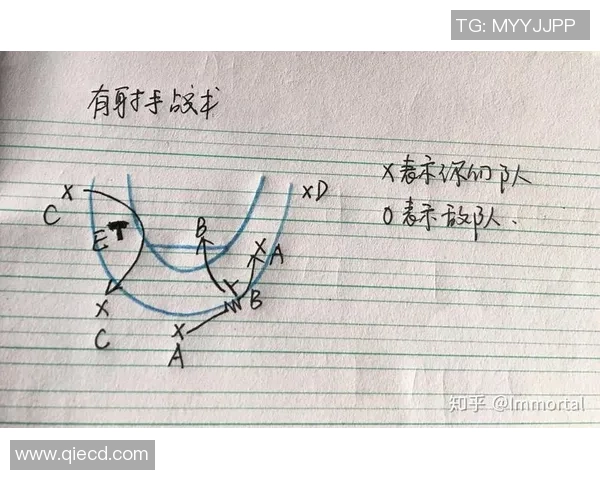 TG: MYYJJPP
有射手战术
X表示你们队
O表示敌队.
X
C
E
X
C
B
X
A
B
X
A
XD
知乎 @Immortal
www.qiecd.com